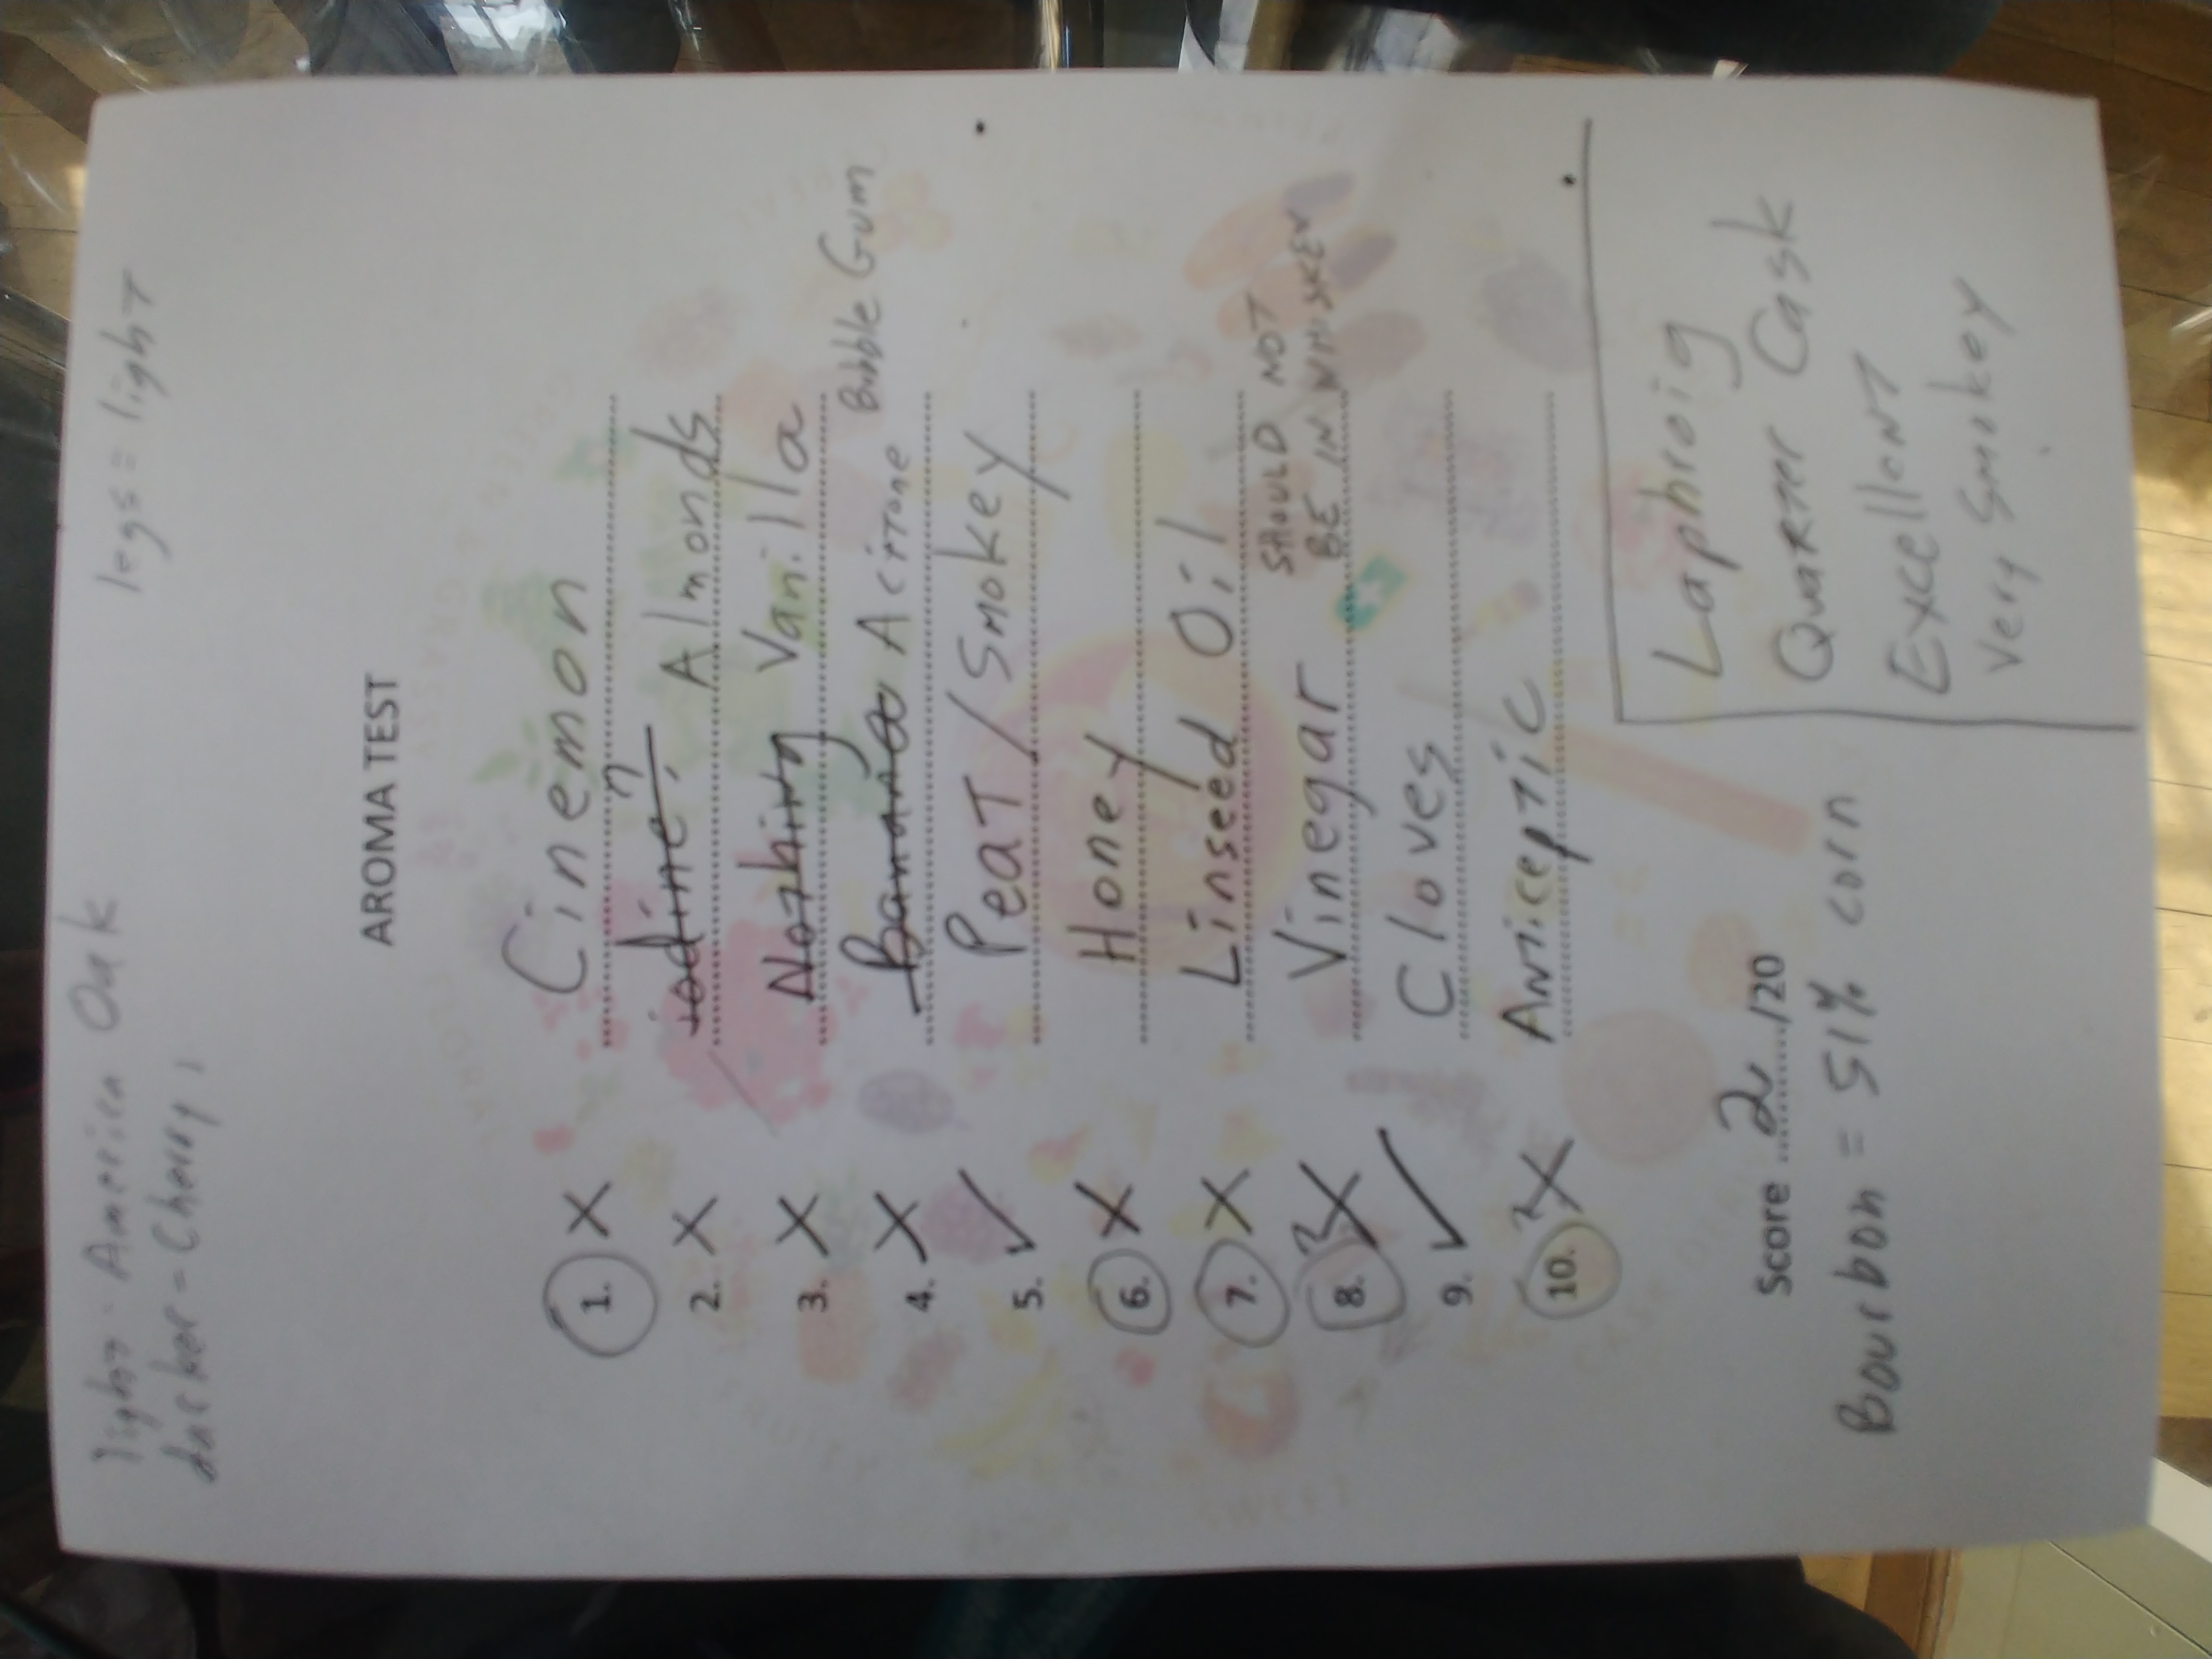 light - American Oak legs = light
darker = Cherry,
AROMA TEST
1. X Cinemon
n
2. X iodine. Almonds
3. X Nothing Vanilla
4. X Banana Acitone Bubble Gum
5. ✓ Peat / Smokey
6. X Honey
7. X Linseed Oil
SHOULD NOT
8. X Vinegar BE IN WHISKEY
9. ✓ Cloves
10. X Anticeptic
Score 2 /20
Bourbon = 51% corn
Laphroig
Quarter Cask
Excellent
Very Smokey